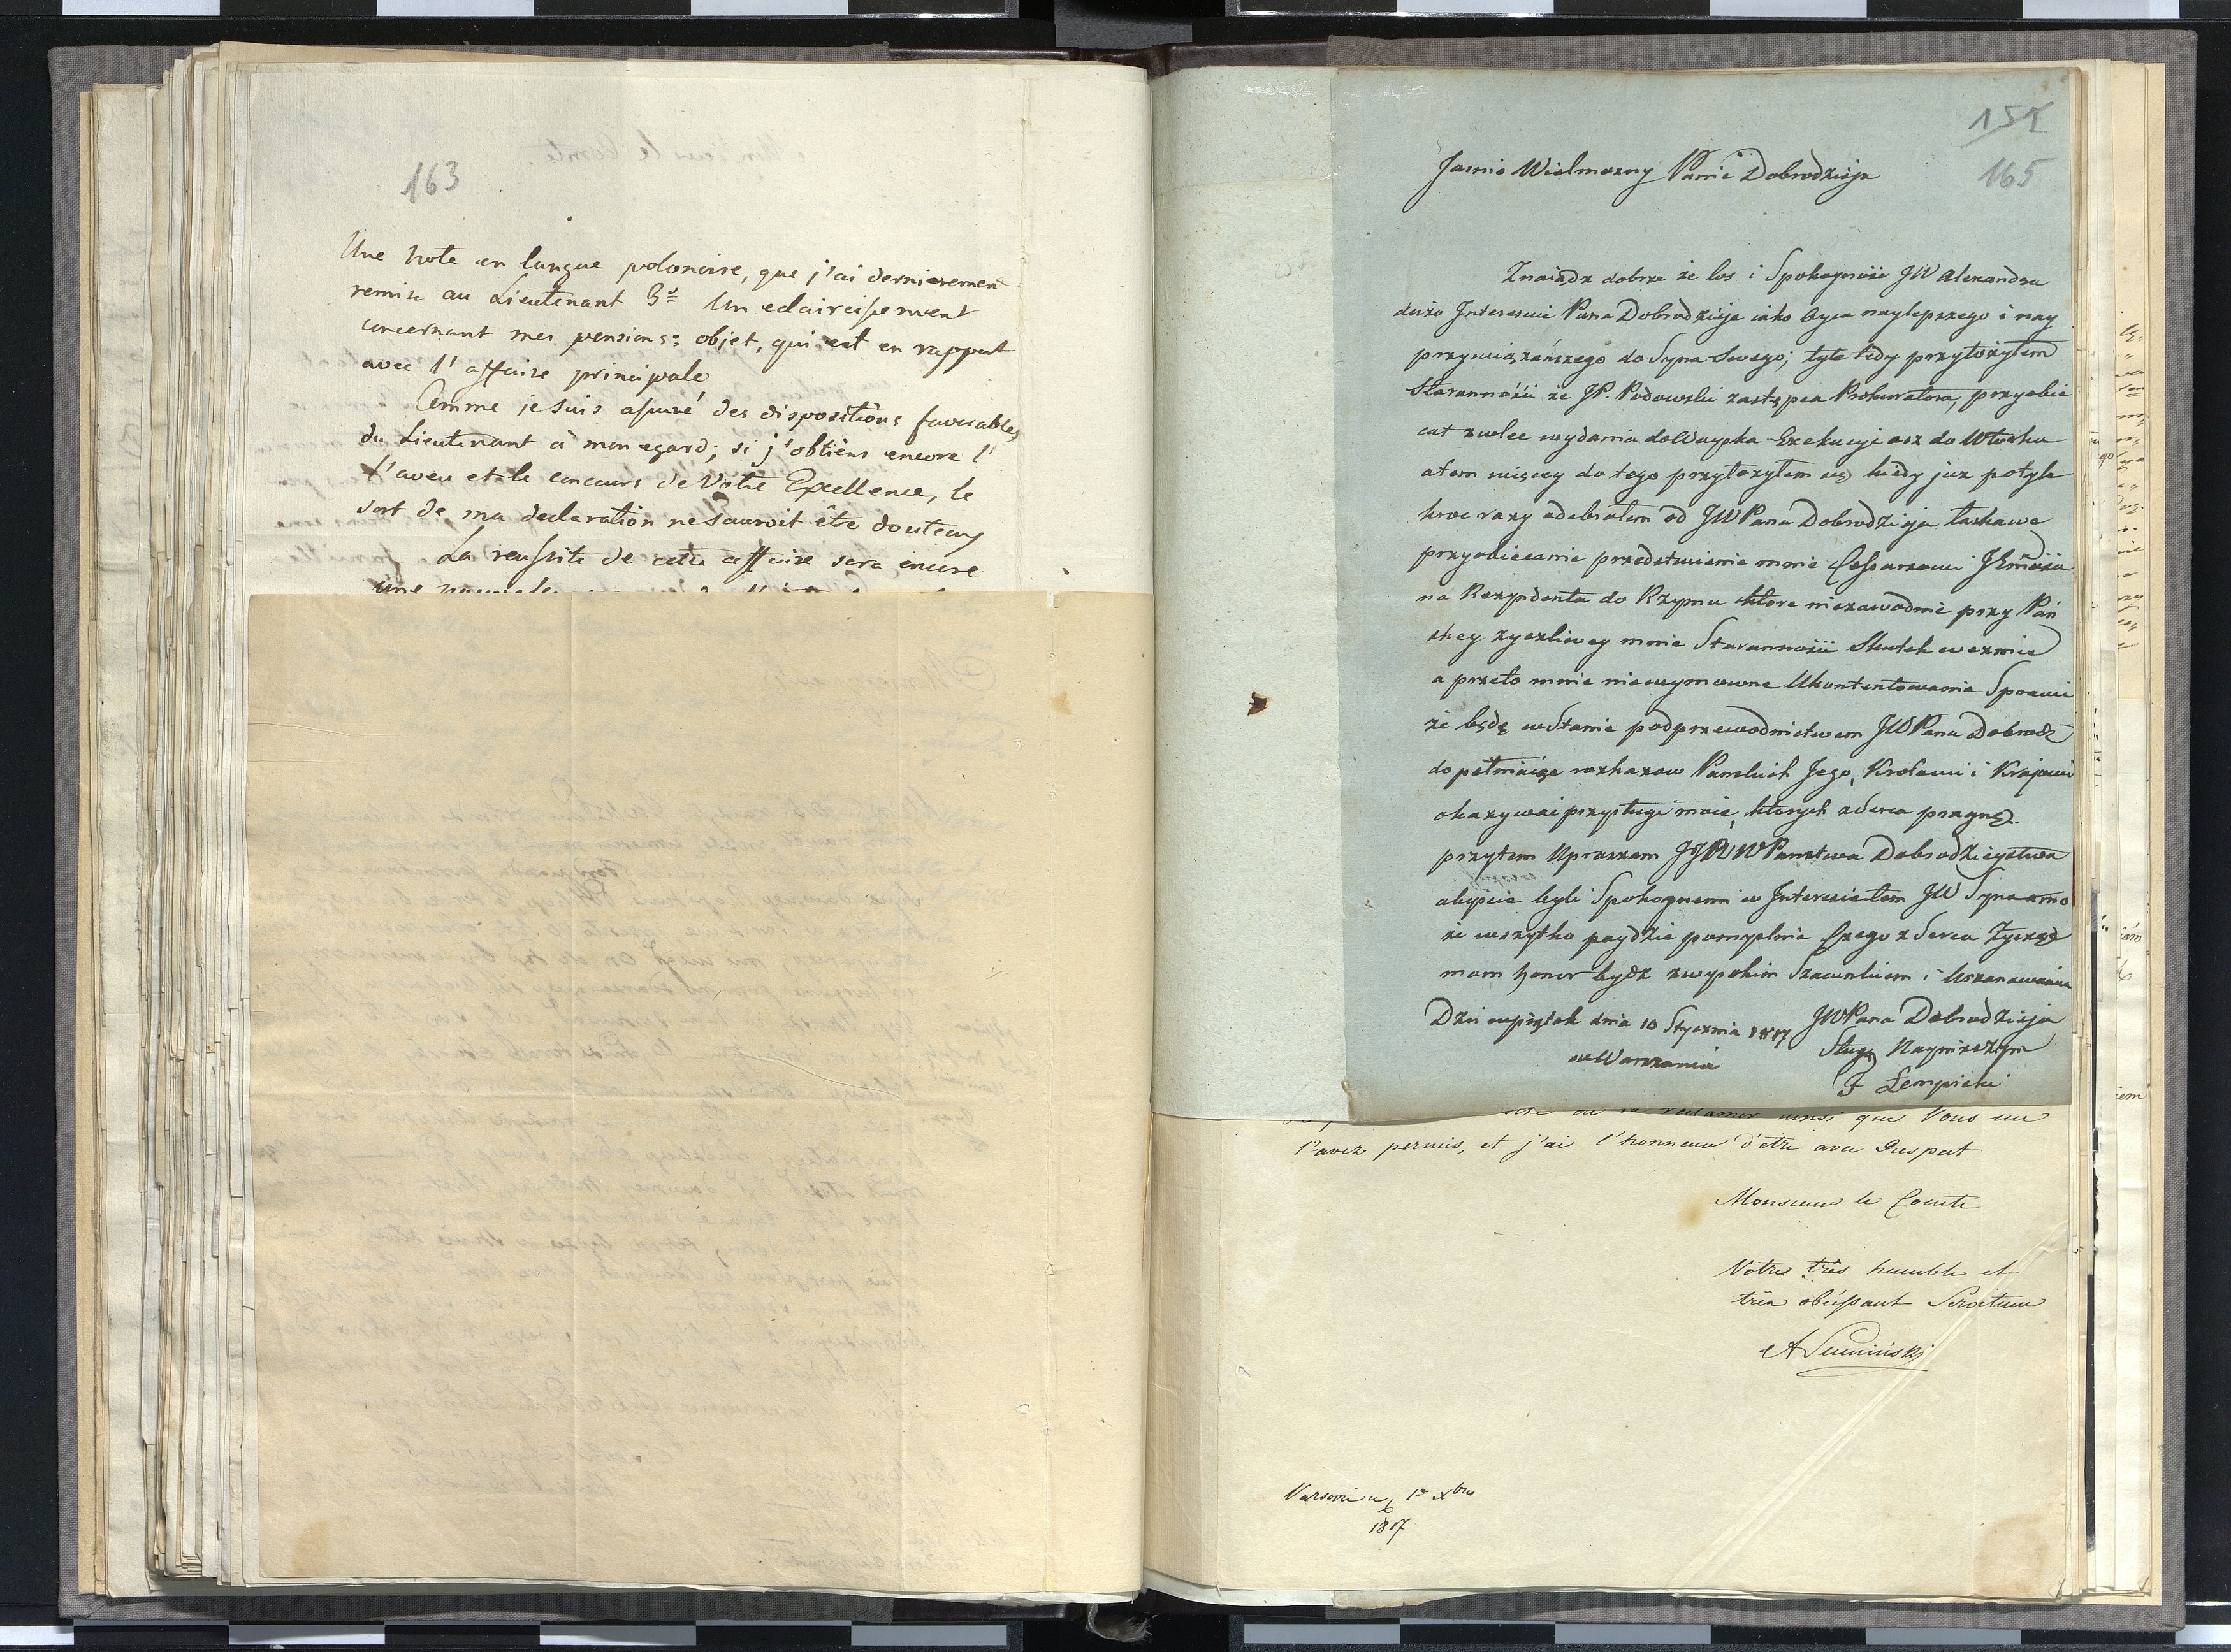 163
Une note en langue polonoise, que j'ai dernierement
remise au Lieutenant
concernant mes pensions: objet, qui est en rapport
avec l'affaire principale
Comme je suis assuré des dispositions favorables
du Lieutenant à mon egard; si j'obtiens encore l'
l'aveu et le concours de Votre Excellence, le
sort de ma declaration ne sauroit être douteux
La reussite de cette affaire sera encore
une nouvelle
151
165
Jasnie Wielmozny Panie Dobrodzieja
Znaiądz dobrze że los i Spokoyność JW Alexandra
dużo Interesuie Pana Dobrodzieja iako Oyca naylepszego i nay
przywiązańszego do Syna Swego; tyle tedy przyłożyłem
Staranności że JP. Podowski zastępca Prokuratora, przyobie
cał zwlec wydania do Woyska Exekucyi asz do Wtorku
do tego przyłozyłem się kiedy juz potyle
kroc razy odebrałem od JW Pana Dobrodzieja łaskawe
przyobiecanie przedstwienie mnie Cesarzowi
na Rezydenta do Rzymu ktore niezawodnie przy Pań
skey zyczliwey mnie Staranności Skutek wezmie
a przeto mnie niewymowne Ukontentowanie Sprawi
że będę w Stanie pod przewodnictwem JW Pana Dobrodz
dopełniaiąc rozkazow Panskich Jego, Krolowi i Krajowi
okazywać przysługi moie, ktorych z Serca pragnę.
przytem Upraszam Panstwa Dobrodzieystwa
abyście byli Spokoynemi w Interesie tem JW Syna
że wszytko poydzie pomyslnie Czego z Serca Zyczę
mam honor bydz z wysokim Szacunkiem i Uszanowaniem
Dzis w piątek dnia 10 Stycznia 1817
w Warszawie
JW Pana Dobrodzieja
Sługą Nayniższym
F Lempicki
reclamer ainsi que Vous me
l'avez permis, et j'ai l'honneur d'etre avec Respect
Monsieur le Comte
Votre très humble et
très obéissant Serviteur
A Sumiński
Varsovie 1r xbre
1817